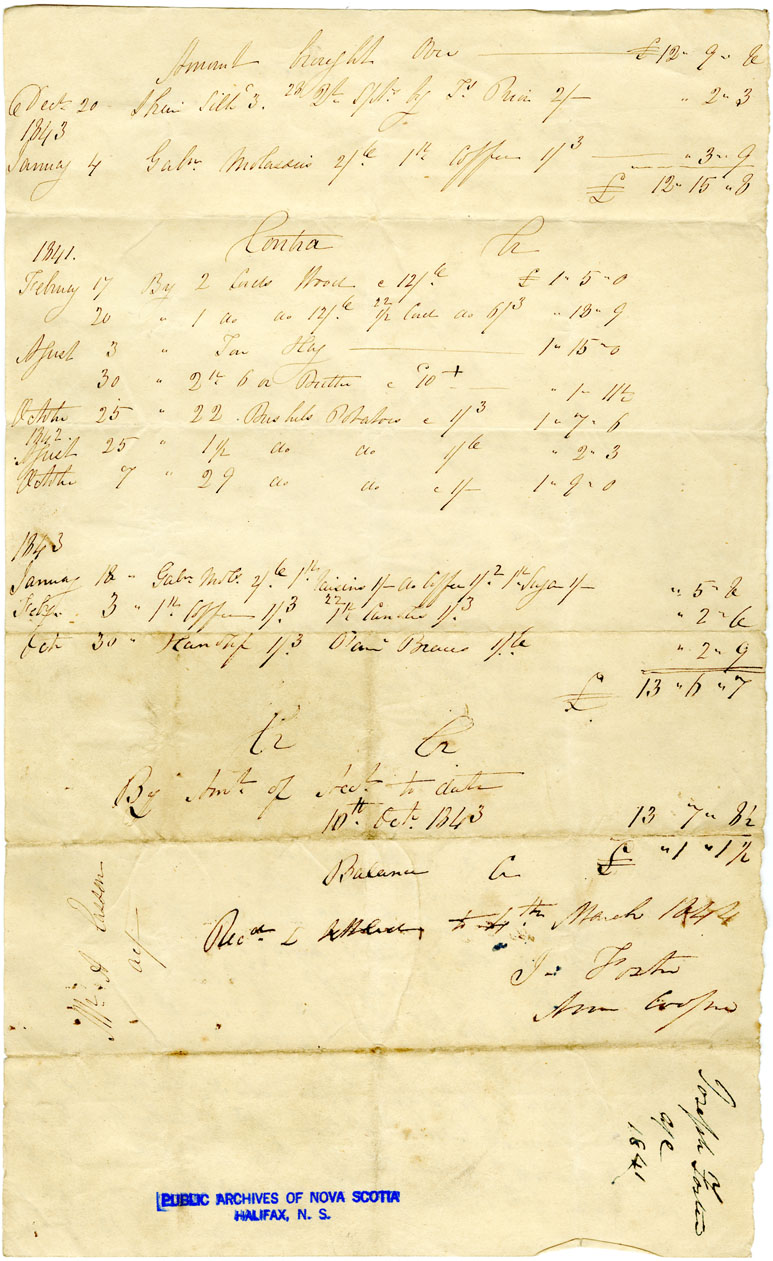 Amount brought Over £12 " 9 " 8
Dect. 20 Skein Silk 3. 2/- " 2 " 3
1843
January 4 Galn Molasses 2/6 1 lb Coffee 1/3 " 3 " 9
£ 12 " 15 " 8
1841. Contra Cr
February 17 By 2 Cords Wood @ 12/6 £ 1 " 5 " 0
20 " 1 do do 12/6 1/2 Cord do 6/3 " 18 " 9
August 3 " Ton Hay 1 " 15 " 0
30 " 2 lb 6 oz Butter @ 10 " 1 " 11 1/2
October 25 " 22 Bushels Potatoes @ 1/3 1 " 7 " 6
1842
August 25 " 1 1/2 do do 1/6 " 2 " 3
October 7 " 29 do do @ 1/- 1 " 9 " 0
1843
January 18 " Galn Mols. 2/6 1 lb Raisins 1/- do Coffee 1/2 1 lb Sugar 1/- " 5 " 8
Feby. 3 " 1 lb Coffee 1/3 Candles 1/3 " 2 " 6
Oct 30 " Handkf 1/3 Pair Braces 1/6 " 2 " 9
£ 13 " 6 " 7
Cr Cr
By Amt. of Acct. to date
10th Oct. 1843 13 " 7 " 8 1/2
Balance Cr £ " 1 " 1 1/2
Recd 4th March 1844
Jos Foster
Ann Cooper
Mr A
Joseph Foster
a/c
1841
PUBLIC ARCHIVES OF NOVA SCOTIA
HALIFAX, N. S.